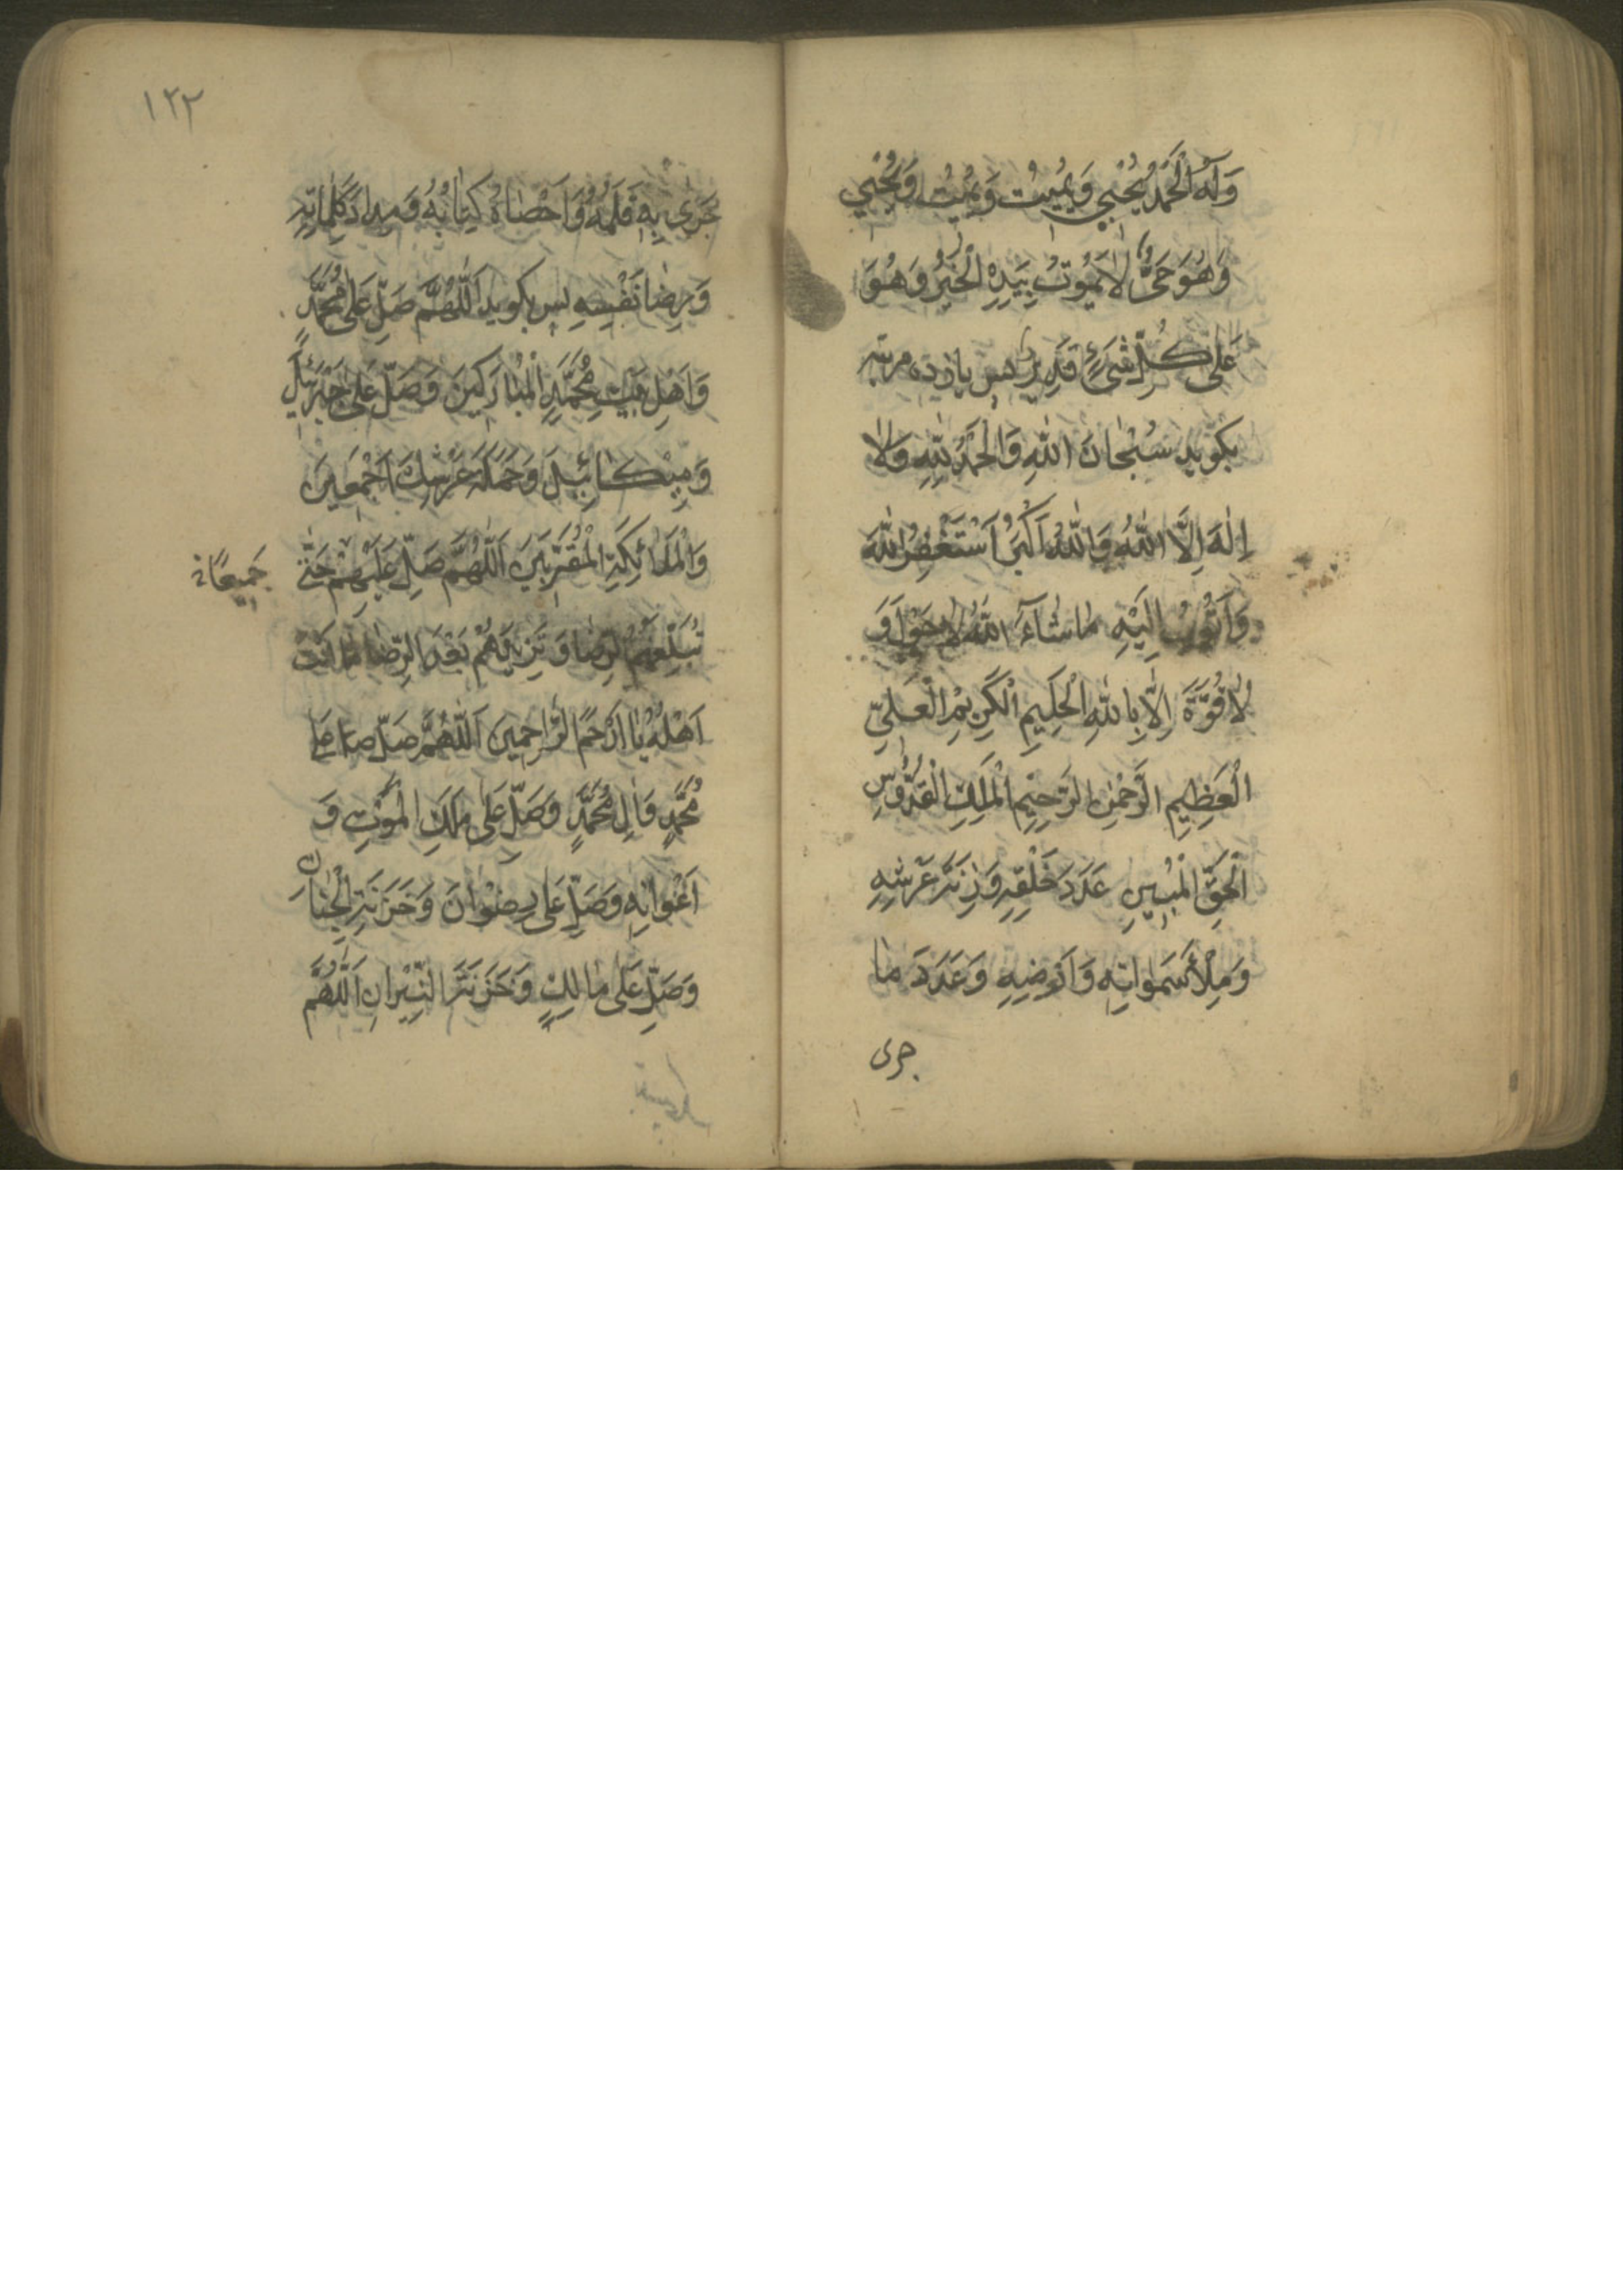 وَلَهُ الْحَمْدُ يُحْيِي وَيُمِيتُ وَيُمِيتُ وَيُحْيِي
وَهُوَ حَيٌّ لَا يَمُوتُ بِيَدِهِ الْخَيْرُ وَهُوَ
عَلَى كُلِّ شَيْءٍ قَدِيرٌ پس یازده مرتبه
بکوید سُبْحَانَ اللهِ وَالْحَمْدُ لِلّهِ وَلَا
اِلهَ اِلَّا اللهُ وَاللهُ اَكْبَرُ اَسْتَغْفِرُ اللهَ
وَاَتُوبُ اِلَيْهِ مَا شَاءَ اللهُ لَا حَوْلَ وَ
لَا قُوَّةَ اِلَّا بِاللهِ الْحَلِيمِ الْكَرِيمِ الْعَلِيِّ
الْعَظِيمِ الرَّحْمنِ الرَّحِيمِ الْمَلِكِ الْقُدُّوسِ
الْحَقِّ الْمُبِينِ عَدَدَ خَلْقِهِ وَزِنَةَ عَرْشِهِ
وَمِلْأَ سَمَوَاتِهِ وَاَرَضِيهِ وَعَدَدَ مَا
جری
١٢٢
جَرَى بِهِ قَلَمُهُ وَاَحْصَاهُ كِتَابُهُ وَمِدَادَ كَلِمَاتِهِ
وَرِضَا نَفْسِهِ پس بکوید اَللّهُمَّ صَلِّ عَلَى مُحَمَّدٍ
وَاَهْلِ بَيْتِ مُحَمَّدٍ الْمُبَارَكِينَ وَصَلِّ عَلَى جَبْرَئِيلَ
وَمِيكَائِيلَ وَحَمَلَةِ عَرْشِكَ اَجْمَعِينَ
وَالْمَلَائِكَةِ الْمُقَرَّبِينَ اَللّهُمَّ صَلِّ عَلَيْهِمْ حَتَّى
جَمِيعًا
تُبَلِّغَهُمُ الرِّضَا وَتَزِيدَهُمْ بَعْدَ الرِّضَا مَا اَنْتَ
اَهْلُهُ يَا اَرْحَمَ الرَّاحِمِينَ اَللّهُمَّ صَلِّ عَلَى
مُحَمَّدٍ وَالِ مُحَمَّدٍ وَصَلِّ عَلَى مَلَكِ الْمَوْتِ وَ
اَعْوَانِهِ وَصَلِّ عَلَى رِضْوَانَ وَخَزَنَةِ الْجِنَانِ
وَصَلِّ عَلَى مَالِكٍ وَخَزَنَةِ النِّيرَانِ اَللّهُمَّ